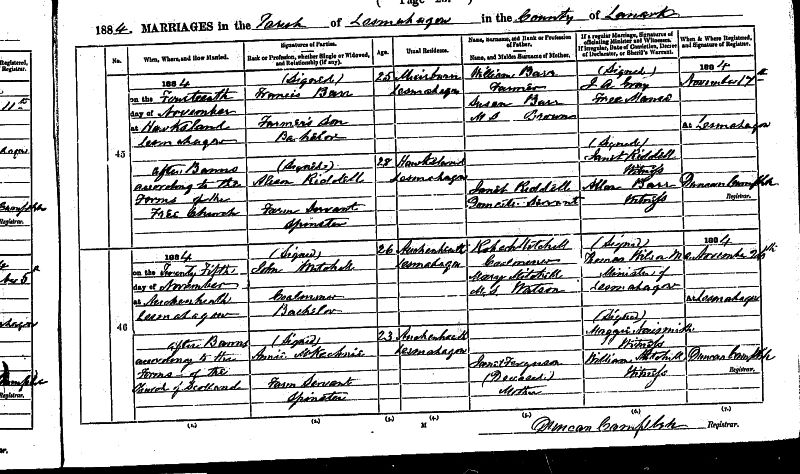 1884. MARRIAGES in the Parish of Lesmahagow in the County of Lanark
No.
When, Where, and How Married.
Signatures of Parties.
Rank or Profession, whether Single or Widowed, and Relationship (if any).
Age.
Usual Residence.
Name, Surname, and Rank or Profession of Father.
Name, and Maiden Surname of Mother.
If a regular Marriage, Signatures of officiating Minister and Witnesses.
If Irregular, Date of Conviction, Decree of Declarator, or Sheriff's Warrant.
When & Where Registered, and Signature of Registrar.
45
1884
on the Fourteenth
day of November
at Hawksland
Lesmahagow
After Banns
according to the
Forms of the
Free Church
(Signed)
Francis Barr
Farmer's Son
Bachelor
(Signed)
Alison Riddell
Farm Servant
Spinster
25
28
Lesmahagow
Hawksland
Lesmahagow
William Barr
Farmer
Susan Barr
M.S. Brown
Janet Riddell
Domestic Servant
(Signed)
J. A. Gray
Free Manse
(Signed)
Janet Riddell
Witness
Allan Barr
Witness
1884
November 17th
at Lesmahagow
Duncan Campbell
Registrar.
46
1884
on the Twenty Fifth
day of November
at Auchenheath
Lesmahagow
After Banns
according to the
Forms of the
Church of Scotland
(Signed)
John Mitchell
Coalminer
Bachelor
(Signed)
Annie McKechnie
Farm Servant
Spinster
26
23
Auchenheath
Lesmahagow
Auchenheath
Lesmahagow
Robert Mitchell
Coalminer
Mary Mitchell
M.S. Watson
Jane Ferguson
(Deceased)
Mother
(Signed)
Thomas Wilson
Minister of
Lesmahagow
(Signed)
Maggie Naismith
Witness
William Mitchell
Witness
1884
November 26th
at Lesmahagow
Duncan Campbell
Registrar.
(1.)
(2.)
(3.)
(4.)
(5.)
(6.)
(7.)
M
Duncan Campbell Registrar.